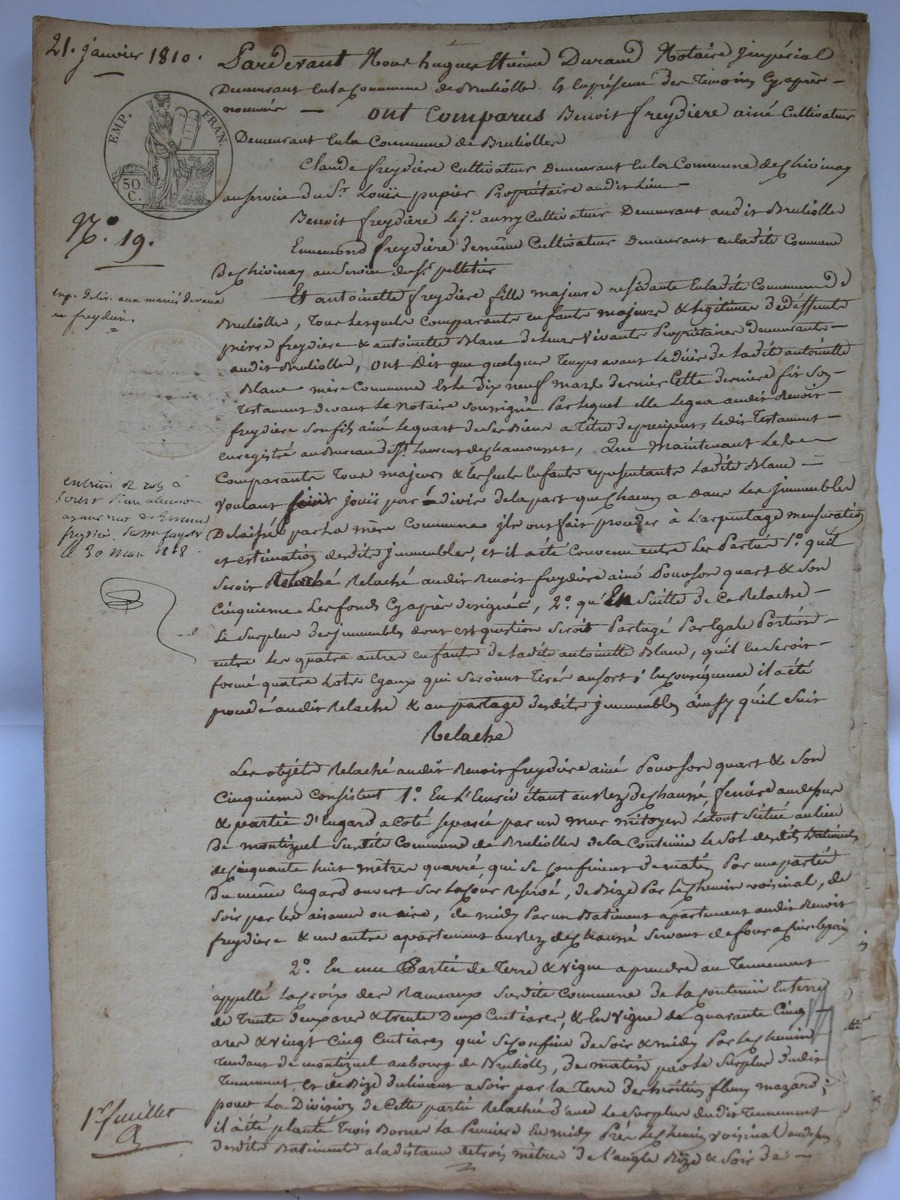 21. janvier 1810.
Pardevant Nous hugues Etienne Durand Notaire jmpérial
Demeurant en la Commune de Brulliolle & En présence des Temoins Cyaprès
nommés — ont Comparus Benoit freydiere ainé Cultivateur
Demeurant en la Commune de Brulliolle
EMP. FRAN.
50. C.
Claude freydiere Cultivateur Demeurant en la Commune de Chivinay
au service du Sr. Louis pupier Propriétaire audit Lieu —
Benoit freydiere Le je. aussy Cultivateur Demeurant audit Brulliolle
Nº. 19.
Ennemond freydiere de même Cultivateur Demeurant en ladite Commune
De Chivinay au Service du Sr. pelletier
exp. deliv. aux mariés
en freydiere.
Et antoinette freydiere fille majeure residante en ladite Commune de
Brulliolle, Tous Lesquels Comparants enfants majeurs & Légitimes de deffunts
pierre freydiere & antoinette Blanc de Leur vivants Propriétaires demeurants
audit Brulliolle, ont Dit que quelque Temps avant Le décès de Ladite antoinette
Blanc mère Commune Et le dix neuf mars dernier Cette dernière fit Son
Testament devant Le Notaire soussigné Par Lequel elle Legua audit Benoit
freydiere Son fils ainé Le quart de Ses Biens a Titre de preciput, Ledit Testament
enregistré au Bureau de St. Laurent de Chamousset, Que Maintenant Les
Comparants Tous majeurs & Les Seuls Enfants representants Ladite Blanc —
Voulant jouir par divis de la part que Chacun a Dans Les jmmeubles
Delaissés par La mère Commune jls ont fait proceder à L'arpentage mensuration
et estimation desdits jmmeubles, et il a été Convenu entre Les Parties 1º. qu'il
Seroit Relaché audit Benoit freydiere ainé Pour son quart & Son
Cinquieme Les fonds Cyaprès designés, 2º. qu'En Suitte de Ce Relache
Le Surplus des jmmeubles dont est question Seroit Partagé Par Egale Portion
entre Les quatre autres enfants de Ladite antoinette Blanc, qu'il en Seroit
formé quatre Lots Egaux qui Seroient Tirés au sort, En Conséquence il a été
procedé audit Relache & au partage desdits jmmeubles ainsy qu'il Suit
30 mars 1818.
Relache
Les objets Relachés audit Benoit freydiere ainé Pour son quart & Son
Cinquieme Consistent 1º. En L'Ecurie étant au Rez de Chaussé fenière au dessus
& partie d'Engard a Coté separée par un mur mitoyen Le tout Situé au Lieu
De montizuel Susdite Commune de Brulliolle de la Contenüe Le Sol desdits Batiments
de Cinquante huit mètres quarré, qui se Confinent de matin Par une partie
Du même Engard ouvert Sur La Cour Reservé, de Bize Par Le Chemin voisinal, de
Soir par les aisances ou aire, de midy Par un Batiment apartenant audit Benoit
freydiere & un autre apartement au Rez de Chaussé Servant de four a Cuire le pain
2º. En une Partie de Terre & vigne a prendre au Tennement
appellé La Croix des Rameaux Susdite Commune de La Contenüe En terre
de Trente deux ares & trente Deux Centiares, & En vigne de quarante Cinq
ares & vingt Cinq Centiares qui Se Confine de Soir & midy Par Le Chemin
Tendant de montizuel au bourg de Brulliolle, de matin par Le Surplus dudit
Tennement et de Bize Declinant a Soir par La Terre des héritiers fleury mazard;
pour La Division de Cette partie Relachée d'avec Le Surplus dudit Tennement
il a été planté Trois Bornes La Premiere En midy Près Le Chemin voisinal au dessus
desdits Batiments a La distance de trois mètres de L'angle Bize & Soir de —
1er. feuillet